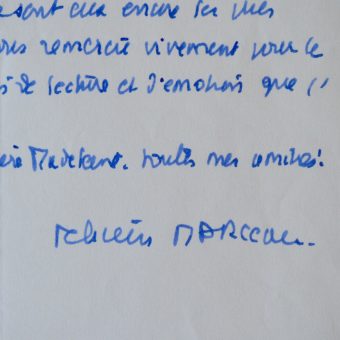 sont eux encore les plus
vous remercie vivement pour le
de lecture et d'émotions que j'
Madeleine. toutes mes amitiés!
Félicien MARCEAU.